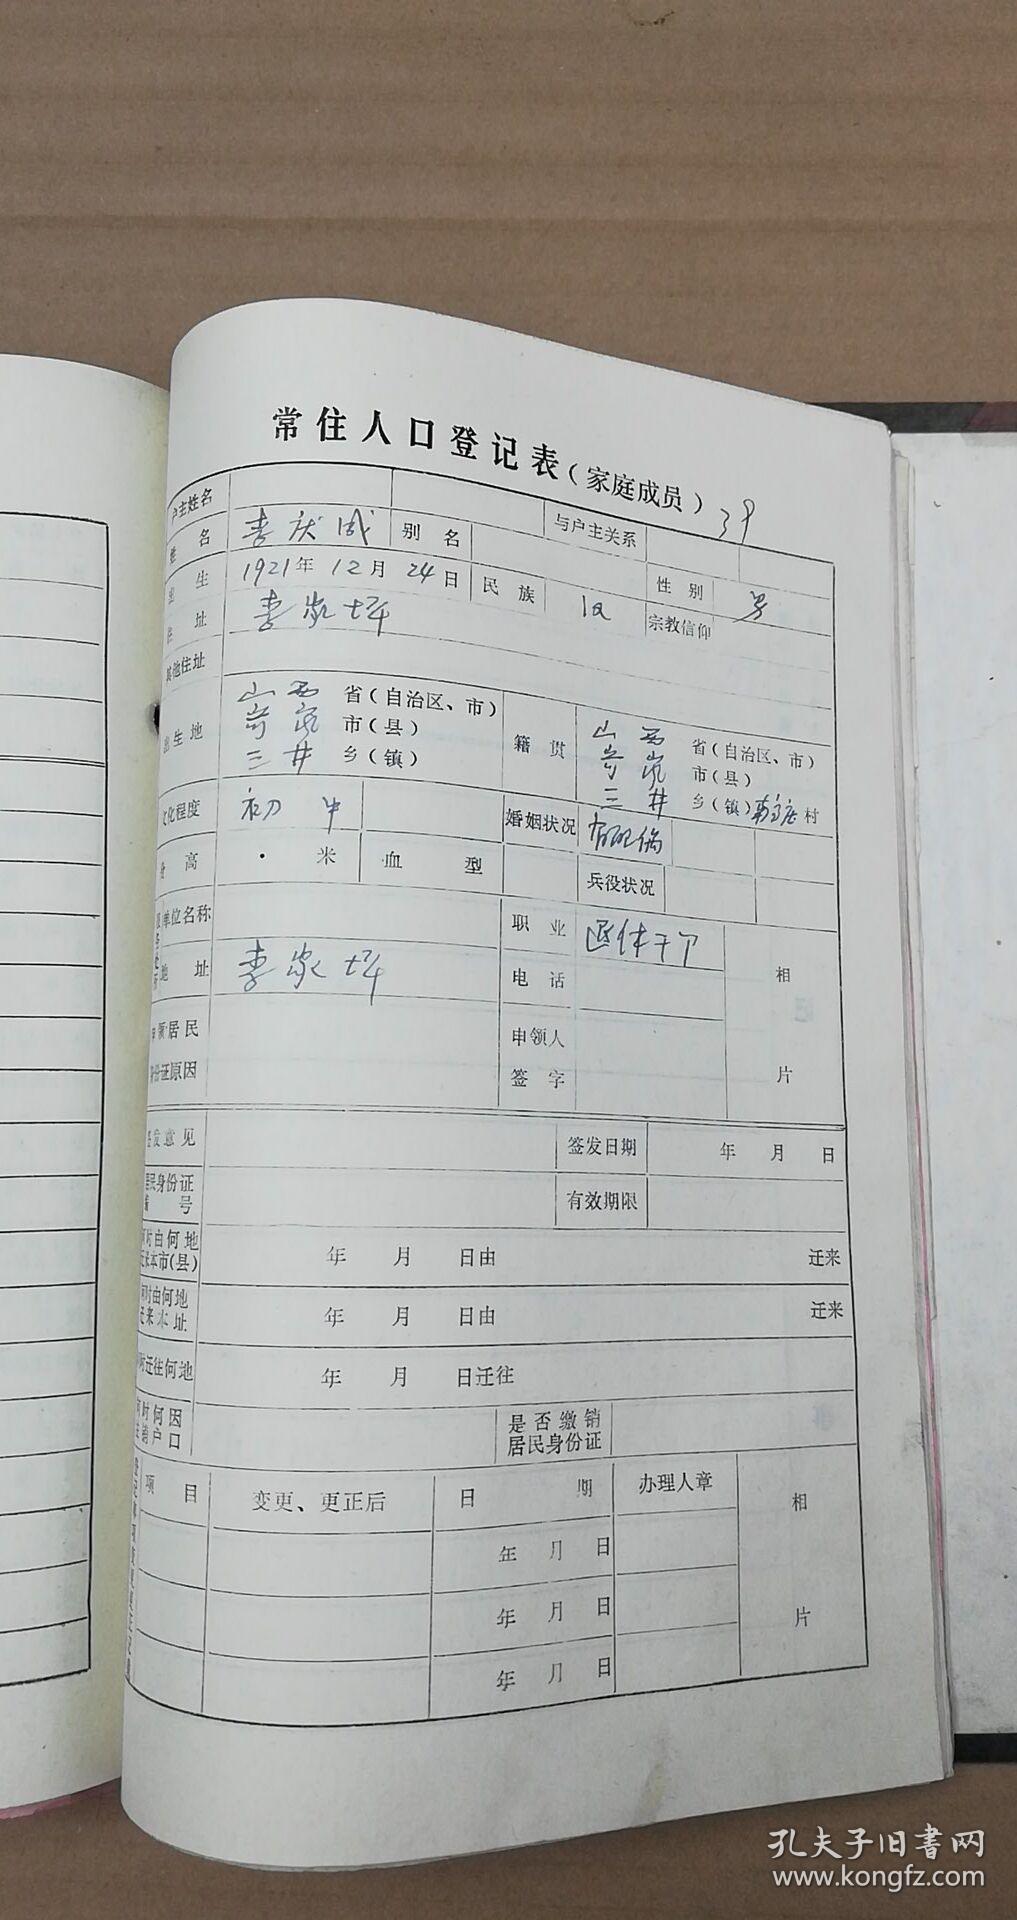 常住人口登记表(家庭成员) 39
户主姓名 与户主关系
姓名 李庆成 别名 性别 男
出生 1921年12月24日 民族 汉 宗教信仰
住址 李家坪
其他住址
出生地 山西 省(自治区、市) 籍贯 山西 省(自治区、市)
岢岚 市(县) 岢岚 市(县)
三井 乡(镇) 三井 乡(镇) 村
文化程度 初中 婚姻状况 有配偶
身高 · 米 血型 兵役状况
单位名称 职业 退休干
地址 李家坪 电话 相
申领居民 申领人
身份证原因 签字 片
签发意见 签发日期 年 月 日
居民身份证
编号 有效期限
何时由何地
迁来本市(县) 年 月 日由 迁来
何时由何地
迁来本址 年 月 日由 迁来
何时迁往何地 年 月 日迁往
何时何因 是否缴销
注销户口 居民身份证
登记事项变更更正记载
项目 变更、更正后 日期 办理人章 相
年 月 日
年 月 日 片
年 月 日
孔夫子旧书网
www.kongfz.com